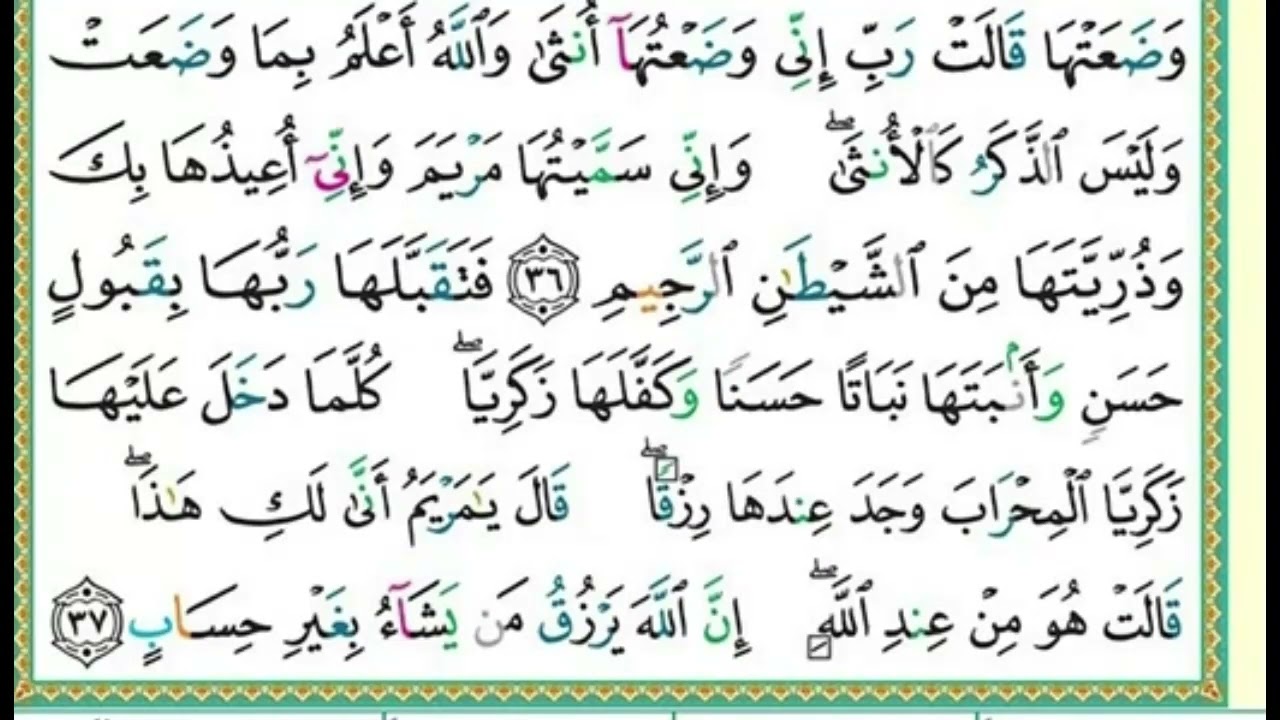 وَضَعَتْهَا قَالَتْ رَبِّ إِنِّى وَضَعْتُهَآ أُنثَىٰ وَٱللَّهُ أَعْلَمُ بِمَا وَضَعَتْ
وَلَيْسَ ٱلذَّكَرُ كَٱلْأُنثَىٰۖ وَإِنِّى سَمَّيْتُهَا مَرْيَمَ وَإِنِّىٓ أُعِيذُهَا بِكَ
وَذُرِّيَّتَهَا مِنَ ٱلشَّيْطَٰنِ ٱلرَّجِيمِ ٣٦ فَتَقَبَّلَهَا رَبُّهَا بِقَبُولٍ
حَسَنٍ وَأَنۢبَتَهَا نَبَاتًا حَسَنًا وَكَفَّلَهَا زَكَرِيَّاۖ كُلَّمَا دَخَلَ عَلَيْهَا
زَكَرِيَّا ٱلْمِحْرَابَ وَجَدَ عِندَهَا رِزْقًاۖ قَالَ يَٰمَرْيَمُ أَنَّىٰ لَكِ هَٰذَاۖ
قَالَتْ هُوَ مِنْ عِندِ ٱللَّهِۖ إِنَّ ٱللَّهَ يَرْزُقُ مَن يَشَآءُ بِغَيْرِ حِسَابٍ ٣٧